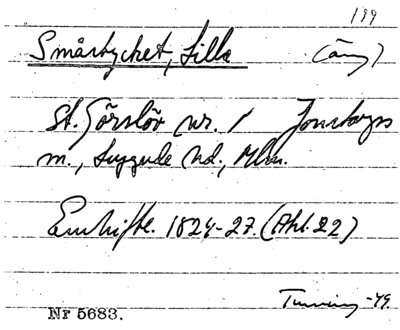 199
Småstycket, Lilla (äng)
St. Görslöv nr. 1 Jonstorps
m., Luggude hd., Mlm.
Enskifte. 1824-27. (Akt. 22)
-49.
Nr 5683.